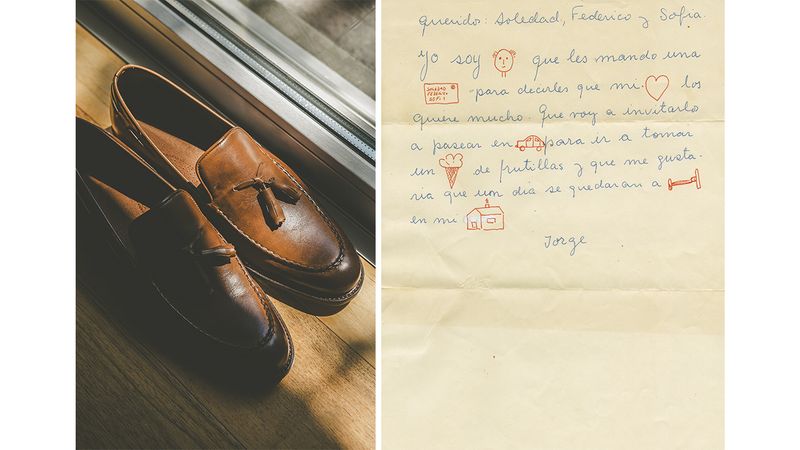 Querido: Soledad, Federico y Sofia.
Yo soy que les mando una
SOLEDAD
FEDERICO
para decirles que mi los
quiere mucho. Que voy a invitarlo
a pasear en para ir a tomar
un de frutillas y que me gusta-
ria que un dia se quedaran a
en mi
Jorge